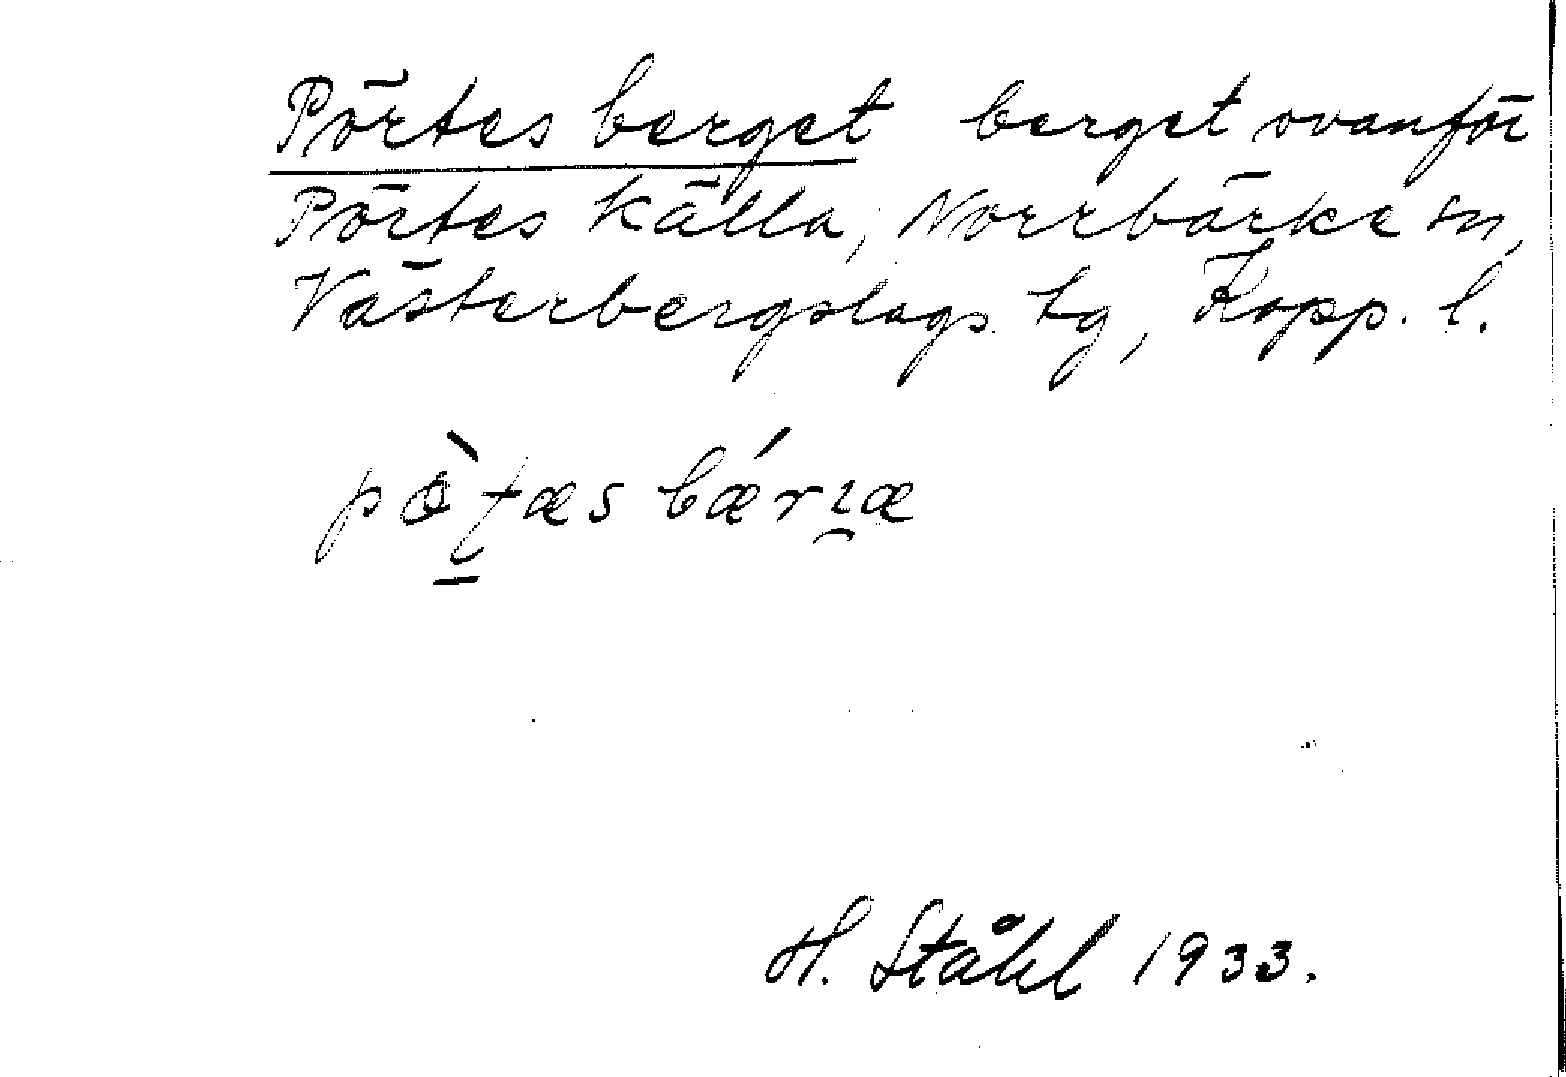 Pörtes berget berget ovanför
Pörtes källa, Norrbärke sn,
Västerbergslags tg, Kopp. l.
H. Ståhl 1933.